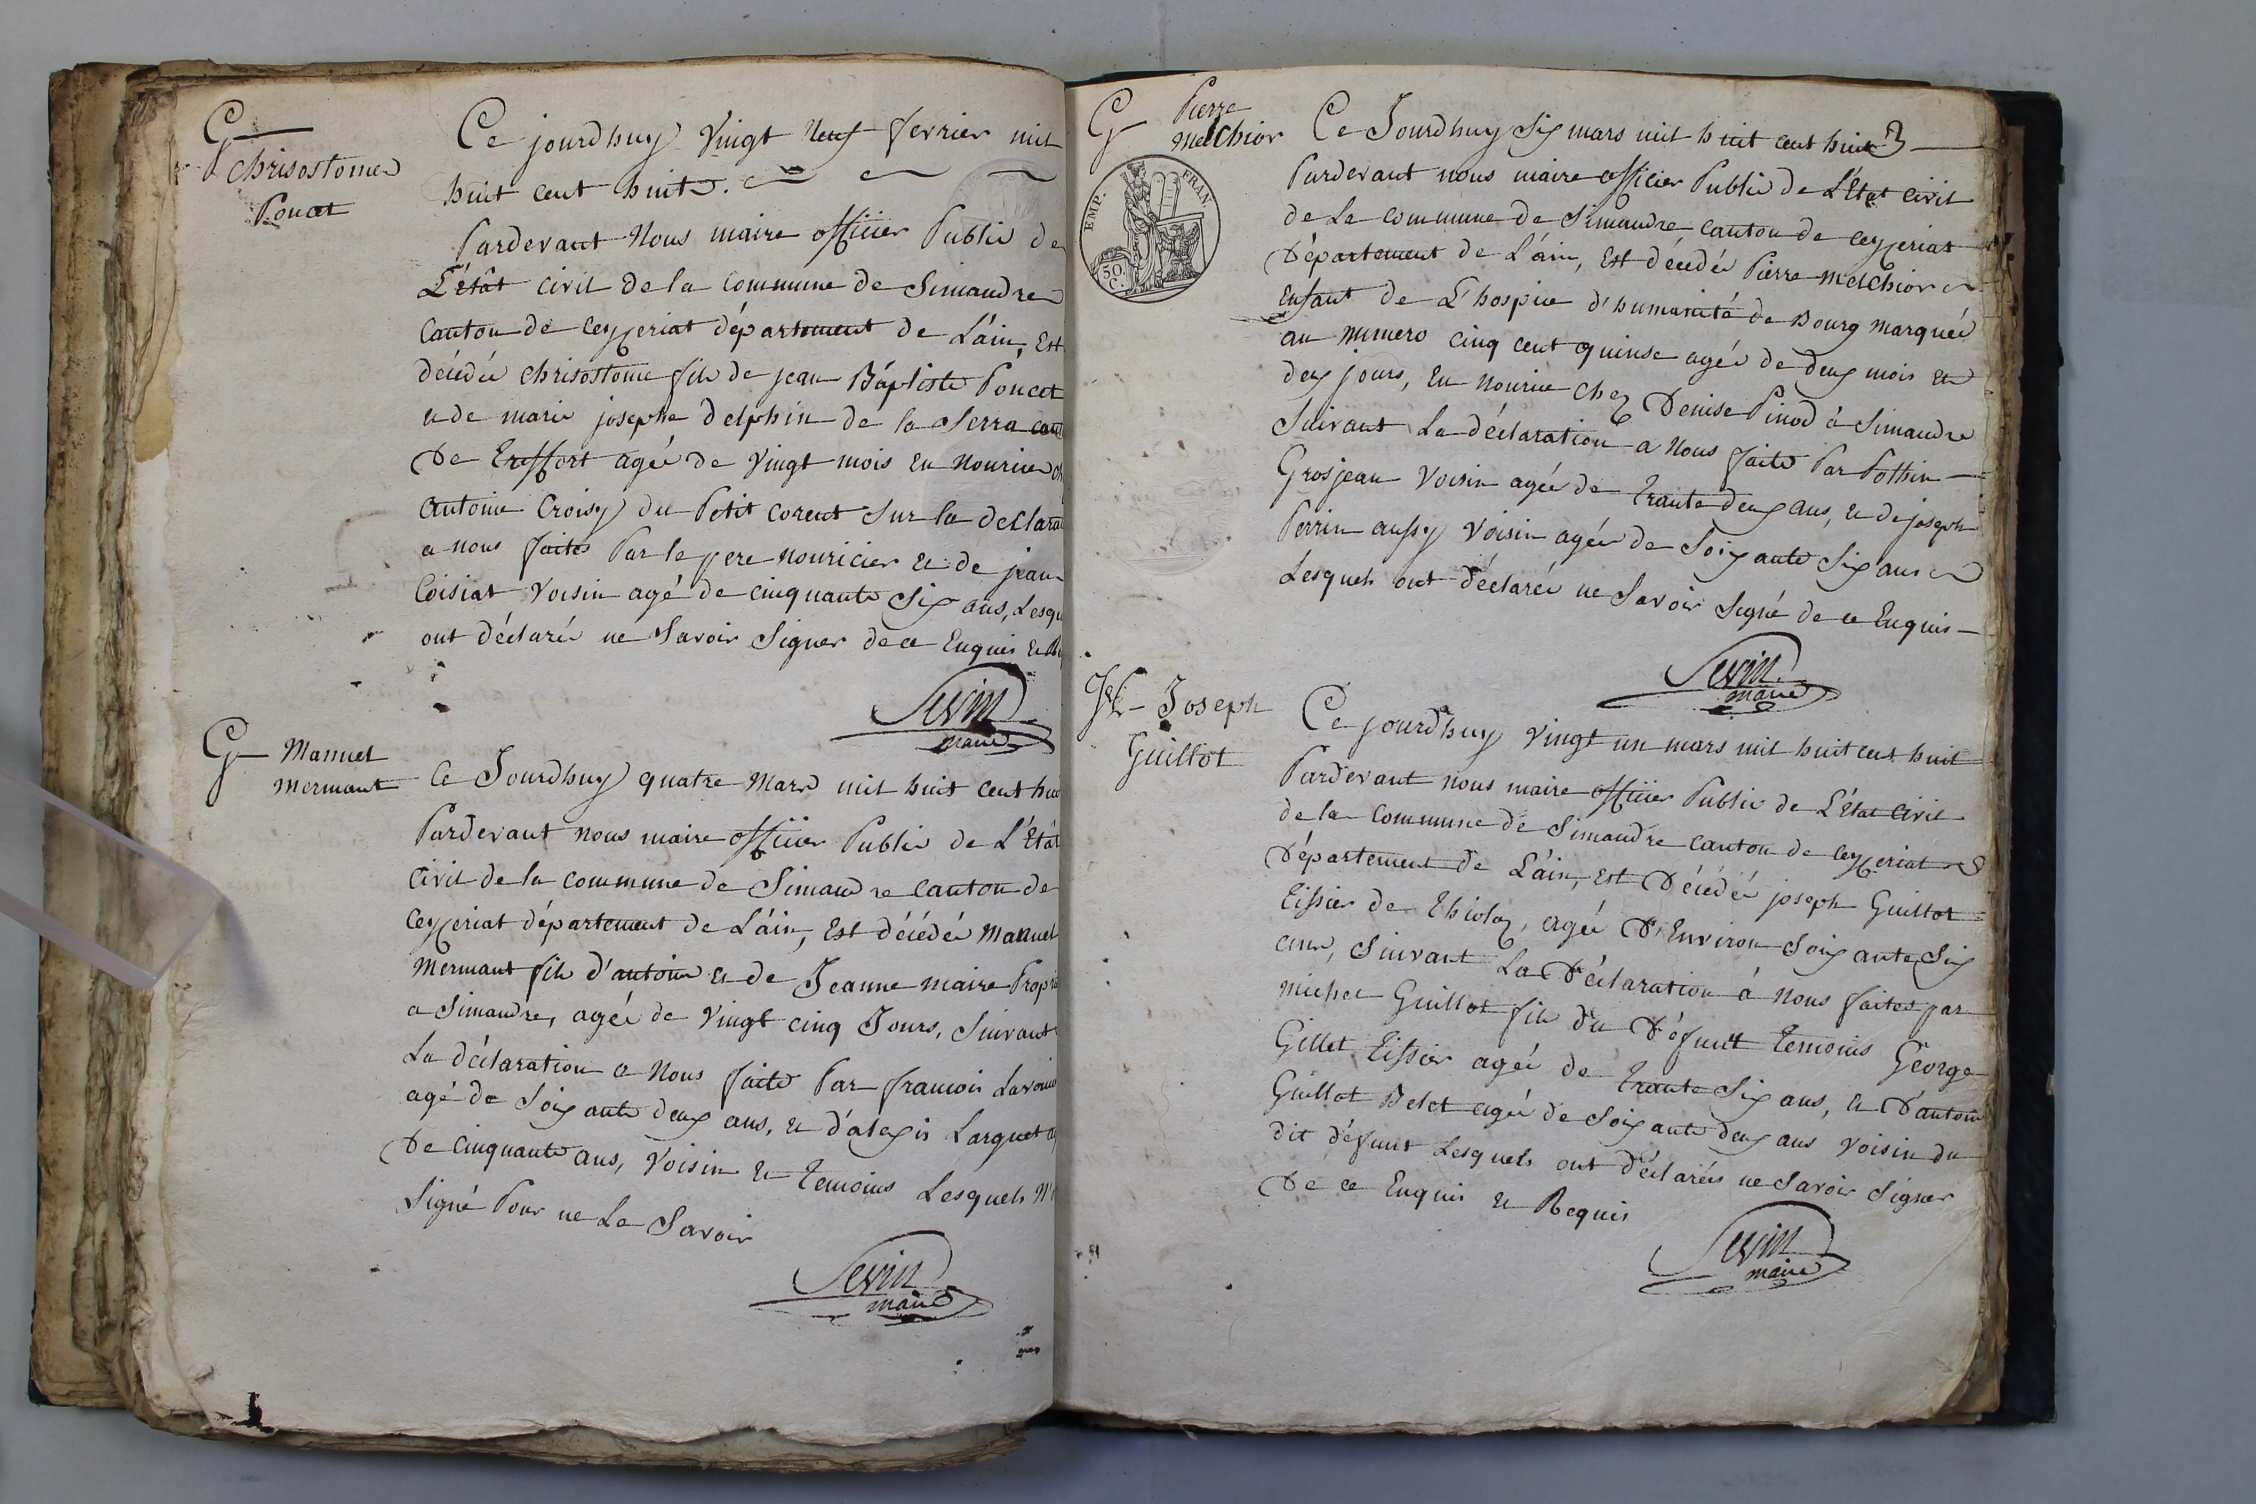 G
Chrisostome
Poncet
Ce jourdhuy vingt neuf fevrier mil
huit cent huit.
Pardevant Nous maire officier Public de
L'état civil de la commune de Simandre
Canton de Ceyzeriat département de L'áin, Est
décédé chrisostome fils de jean Báptiste Poncet
et de marie josephe delphin de la Serra can
De Treffort agée de vingt mois en nourice ch
antoine Croisy du Petit corent sur la declara
a nous faites Par le pere nouricier et de jean
Coisiat voisin agé de cinquante Six ans, Lesqu
ont déclarés ne Savoir Signer de ce Enquis et R
Sevin
maire
G Manuel
Mermant
Ce Jourdhuy quatre Mars mil huit cent hui
Pardevant nous maire officier Public de L'Etát
civil de la commune de Simandre canton de
Ceyzeriat département de L'áin, Est décédé Manuel
Mermant fils d'antoine et de Jeanne maire Propri
a Simandre, agée de vingt cinq Jours, Suivant
La déclaration a Nous faite Par francois
agé de Soixante deux ans, et d'alexis Larguet a
De cinquante ans, Voisin et Temoins Lesquels N'
Signé Pour ne Le Savoir
Sevin
maire
G Pierre
Melchior
EMP. FRAN.
50.
C.
Ce Jourdhuy Six mars mil huit cent huit
Pardevant nous maire officier Public de L'Etat civil
de La commune de Simandre canton de ceyzeriat
Département de L'áin, Est décédée Pierre Melchior
Enfant de L'hospice d'humanité de Bourg Marquée
au numero cinq cent quinse agée de deux mois et
deux jours, en nourice chez Denise Pinod à Simandre
Suivant La déclaration a Nous faite Par Pothin
Grosjean Voisin agée de Trante deux ans, et de joseph
Perrin aussy Voisin agée de Soixante Six ans
Lesquels ont déclarés ne Savoir Signé de ce Enquis
Sevin
maire
Joseph
Guillot
Ce jourdhuy vingt un mars mil huit cent huit
Pardevant nous maire officier Public de L'Etat Civil
de la commune de Simandre canton de ceyzeriat
Département de L'áin, Est Décédé joseph Guillot
Tissier de Thiolaz, agée D'Environ Soixante Six
ans, Suivant La Déclaration á nous faites par
michel Guillot fils du Défunt Temoins George
Gillet Tissier agée de Trante Six ans, et D'antoin
Guillot Belet agée de Soixante deux ans voisin du
dit défunt Lesquels ont déclarés ne Savoir Signer
De ce Enquis et Requis
Sevin
maire